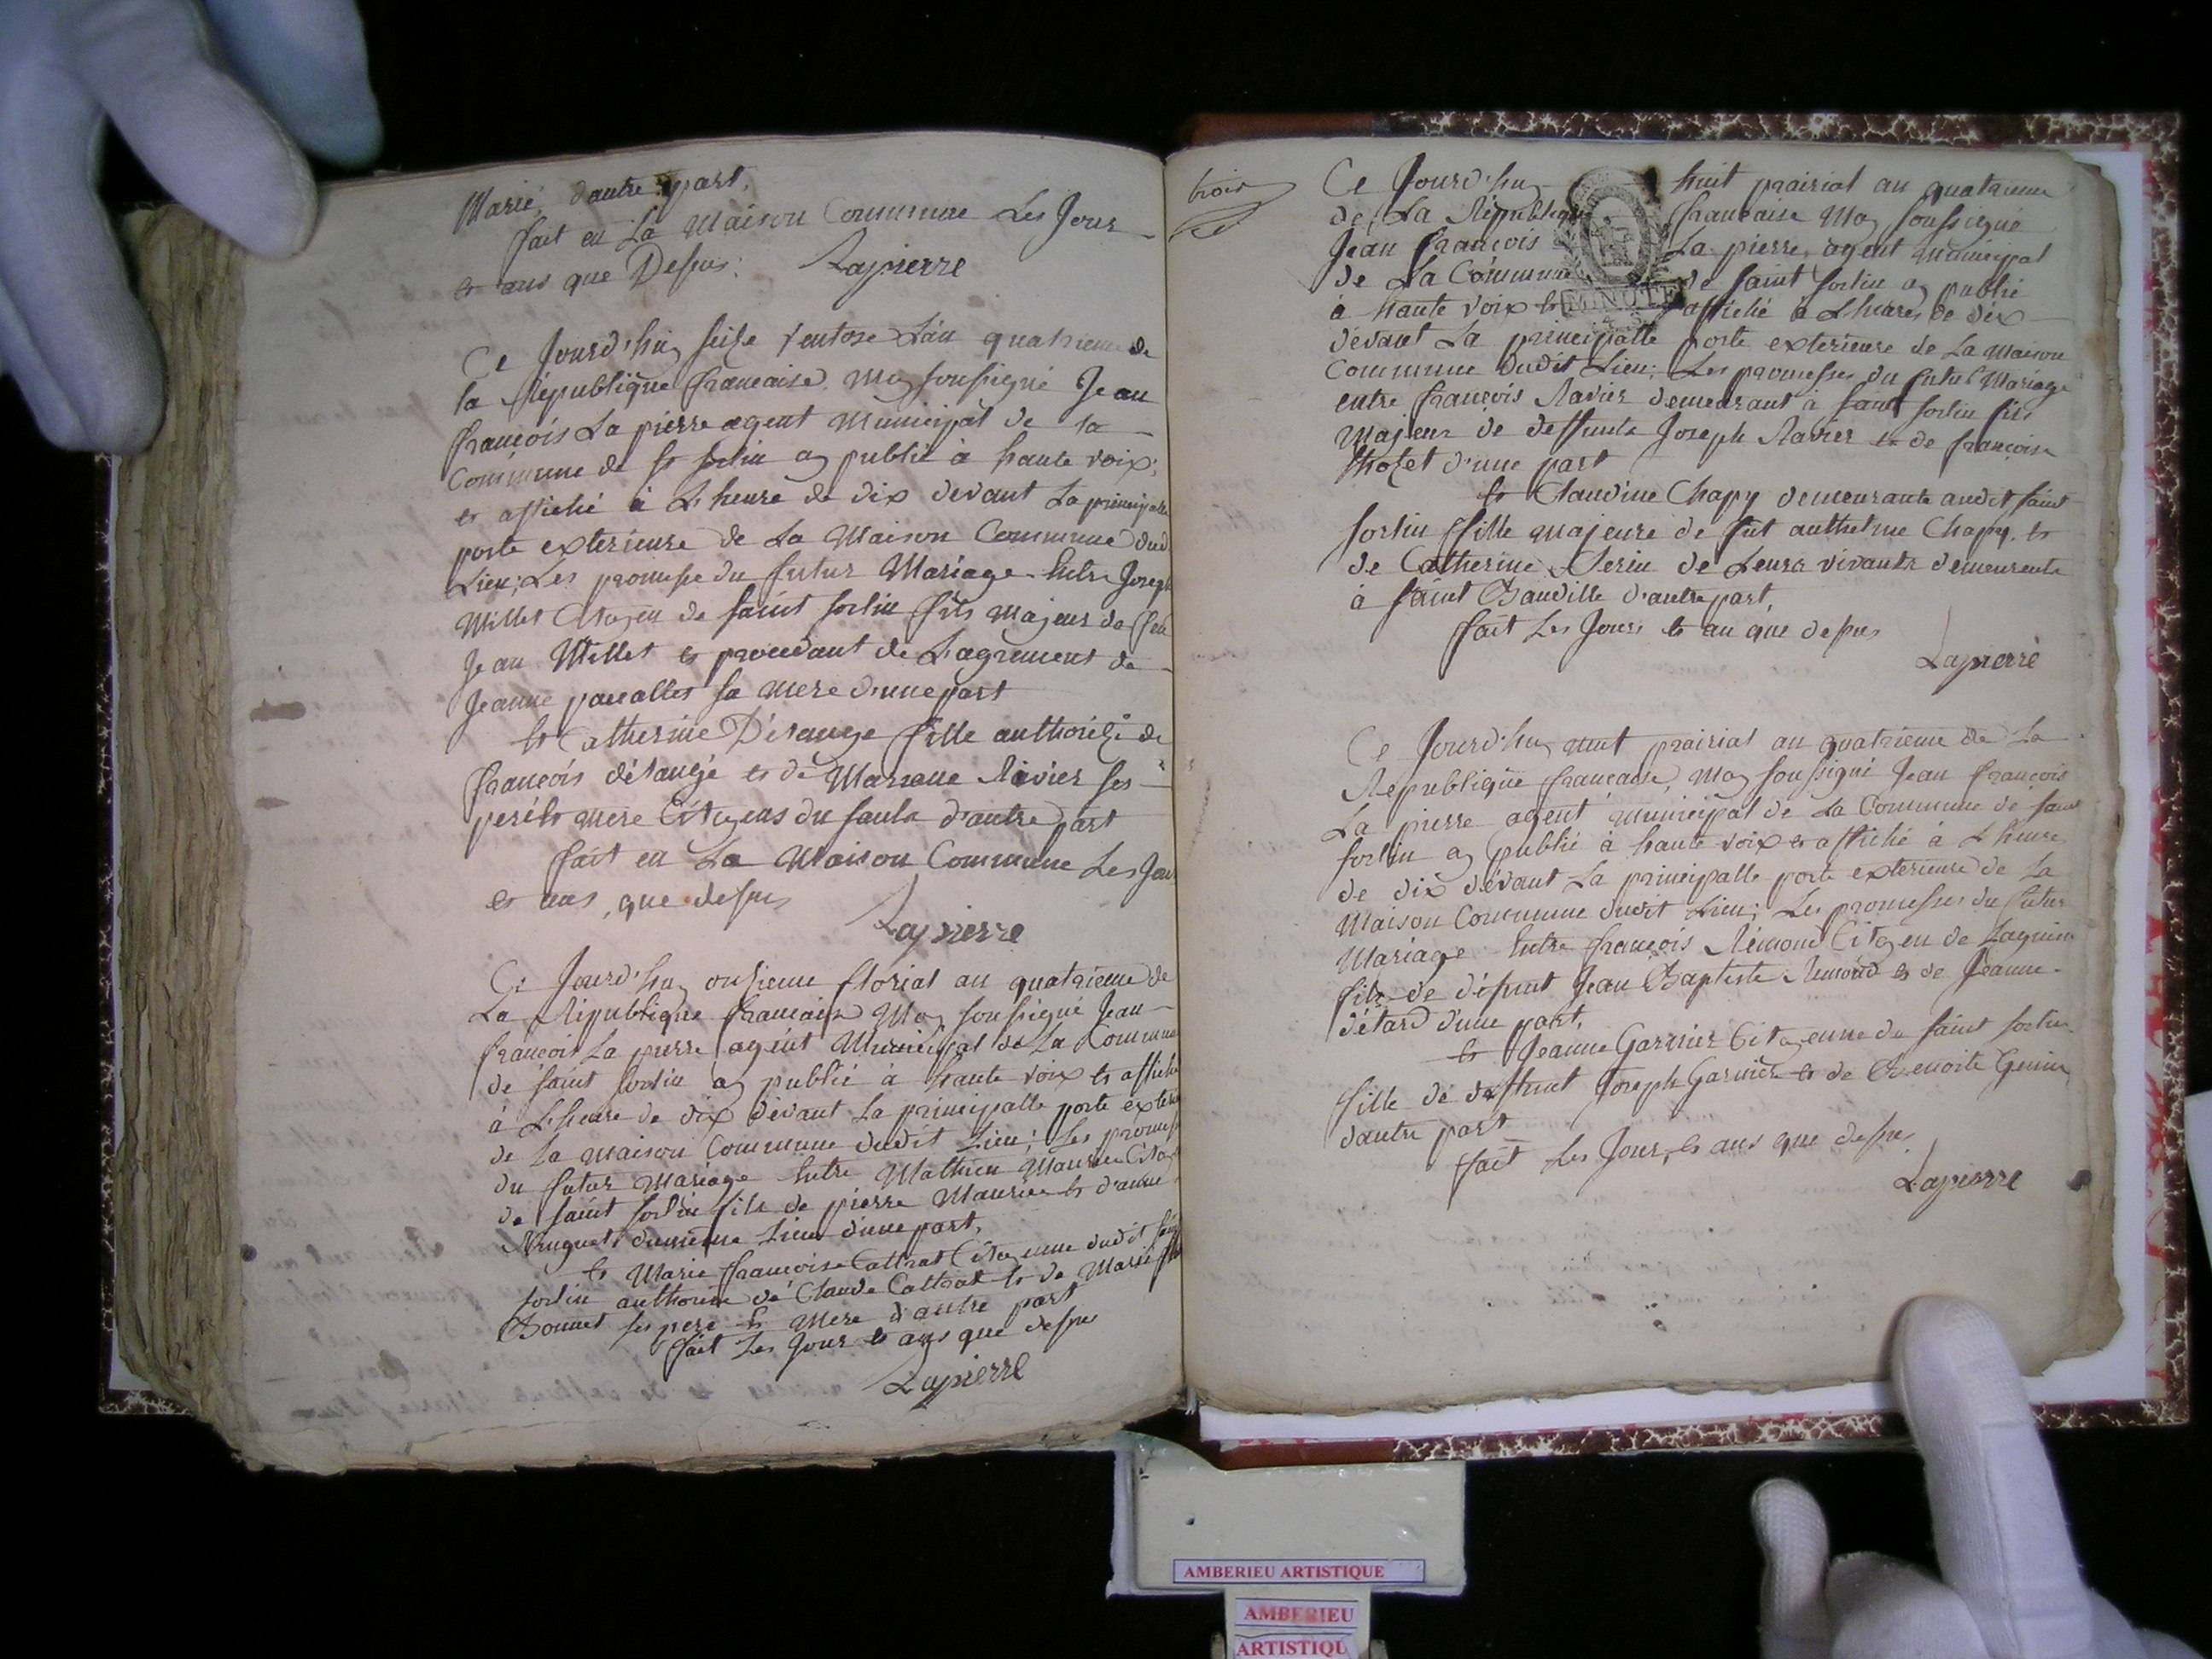 Marié d'autre part,
fait en La Maison Commune Les Jour
et ans que Dessus: Lapierre
Ce Jourd'huy seize Ventose L'an quatrieme de
la République française, Moy soussigné Jean
françois La pierre agent Municipal de la
Commune de St Sorlin ay publié à haute voix;
et affiché à L'heure de dix devant La principalle
porte exterieure de La Maison Commune dud
Lieu; Les promesse du futur Mariage Entre Joseph
Millet Citoyen de saint sorlin fils majeur de feu
Jean Millet et procedant de L'agrement de
Jeanne sa Mere d'une part
Et Catherine fille authorizé de
françois et de Marianne Ravier ses
pere et mere Citoyens du saula d'autre part
fait en La Maison Commune Les Jour
et ans, que dessus
Lapierre
Ce Jourd'huy onzieme floréal an quatrieme de
La République française Moy soussigné Jean
françois La pierre agent Municipal de La Commune
de saint sorlin ay publié à haute voix et affiché
à L'heure de dix devant La principalle porte exter
de La maison Commune dudit Lieu; Les promess
du futur Mariage Entre Mathieu Maurier Citoy
de saint sorlin fils de pierre Maurier et d'anne
du meme Lieu d'une part,
Et Marie françoise Cattrat Citoyenne dudit sain
sorlin authorisée de Claude Cattrat et de Marie
Bonnet ses pere et Mere d'autre part
fait Les Jour et ans que dessus
Lapierre
trois
Ce Jourd'huy huit prairial an quatrieme
de La République française Moy soussigné
Jean françois La pierre, agent municipal
de La Commune de saint sorlin ay publié
à haute voix et affiché à L'heure de dix
MINUTE
devant La principalle porte exterieure de La Maison
Commune dudit Lieu; Les promesses du futur Mariage
entre françois Ravier demeurant à saint sorlin fils
Majeur de deffunts Joseph Ravier et de françoise
Thozet d'une part
Et Claudine Chapy demeurante audit saint
sorlin fille majeure de fut anthelme Chapy et
de Catherine Serin de Leurs vivants demeurents
à saint Bauville d'autre part,
fait Les Jours et an que dessus
Lapierre
Ce Jourd'huy huit prairial an quatrieme de La
République française, Moy soussigné Jean françois
La pierre agent municipal de La Commune de saint
sorlin ay publié à haute voix et affiché à L'heure
de dix devant La principalle porte exterieure de La
Maison Commune dudit Lieu; Les promesses du futur
Mariage Entre françois Rémond Citoyen de Lagnieu
fils de défunt Jean Baptiste Rémond et de Jeanne
détard d'une part,
Et Jeanne Garnier Citoyenne de saint sorlin
fille de deffunt Joseph Garnier et de Benoite Genin
d'autre part
fait Les Jour, et ans que dessus
Lapierre
AMBERIEU ARTISTIQUE
AMBERIEU
ARTISTIQU